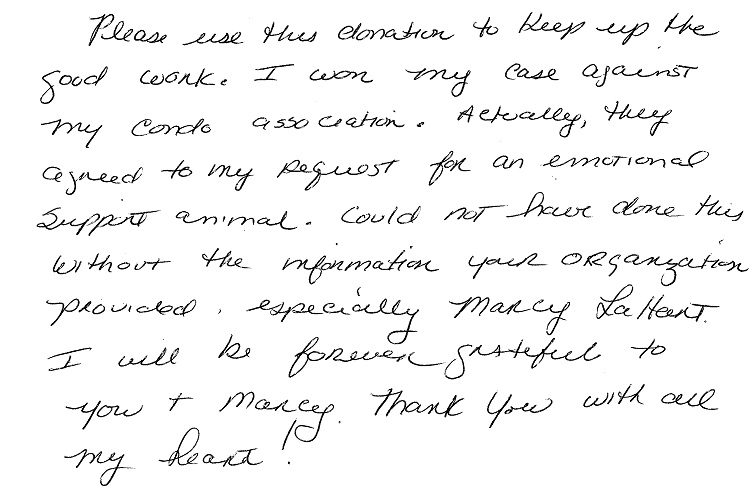 Please use this donation to keep up the
good work. I won my case against
my condo association. Actually, they
agreed to my request for an emotional
support animal. Could not have done this
without the information your organization
provided, especially Marcy LaHart.
I will be forever grateful to
you + Marcy. Thank you with all
my heart!